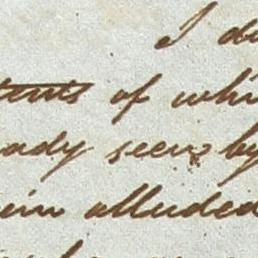 I do
tents of whi
ady seen by
ein alluded